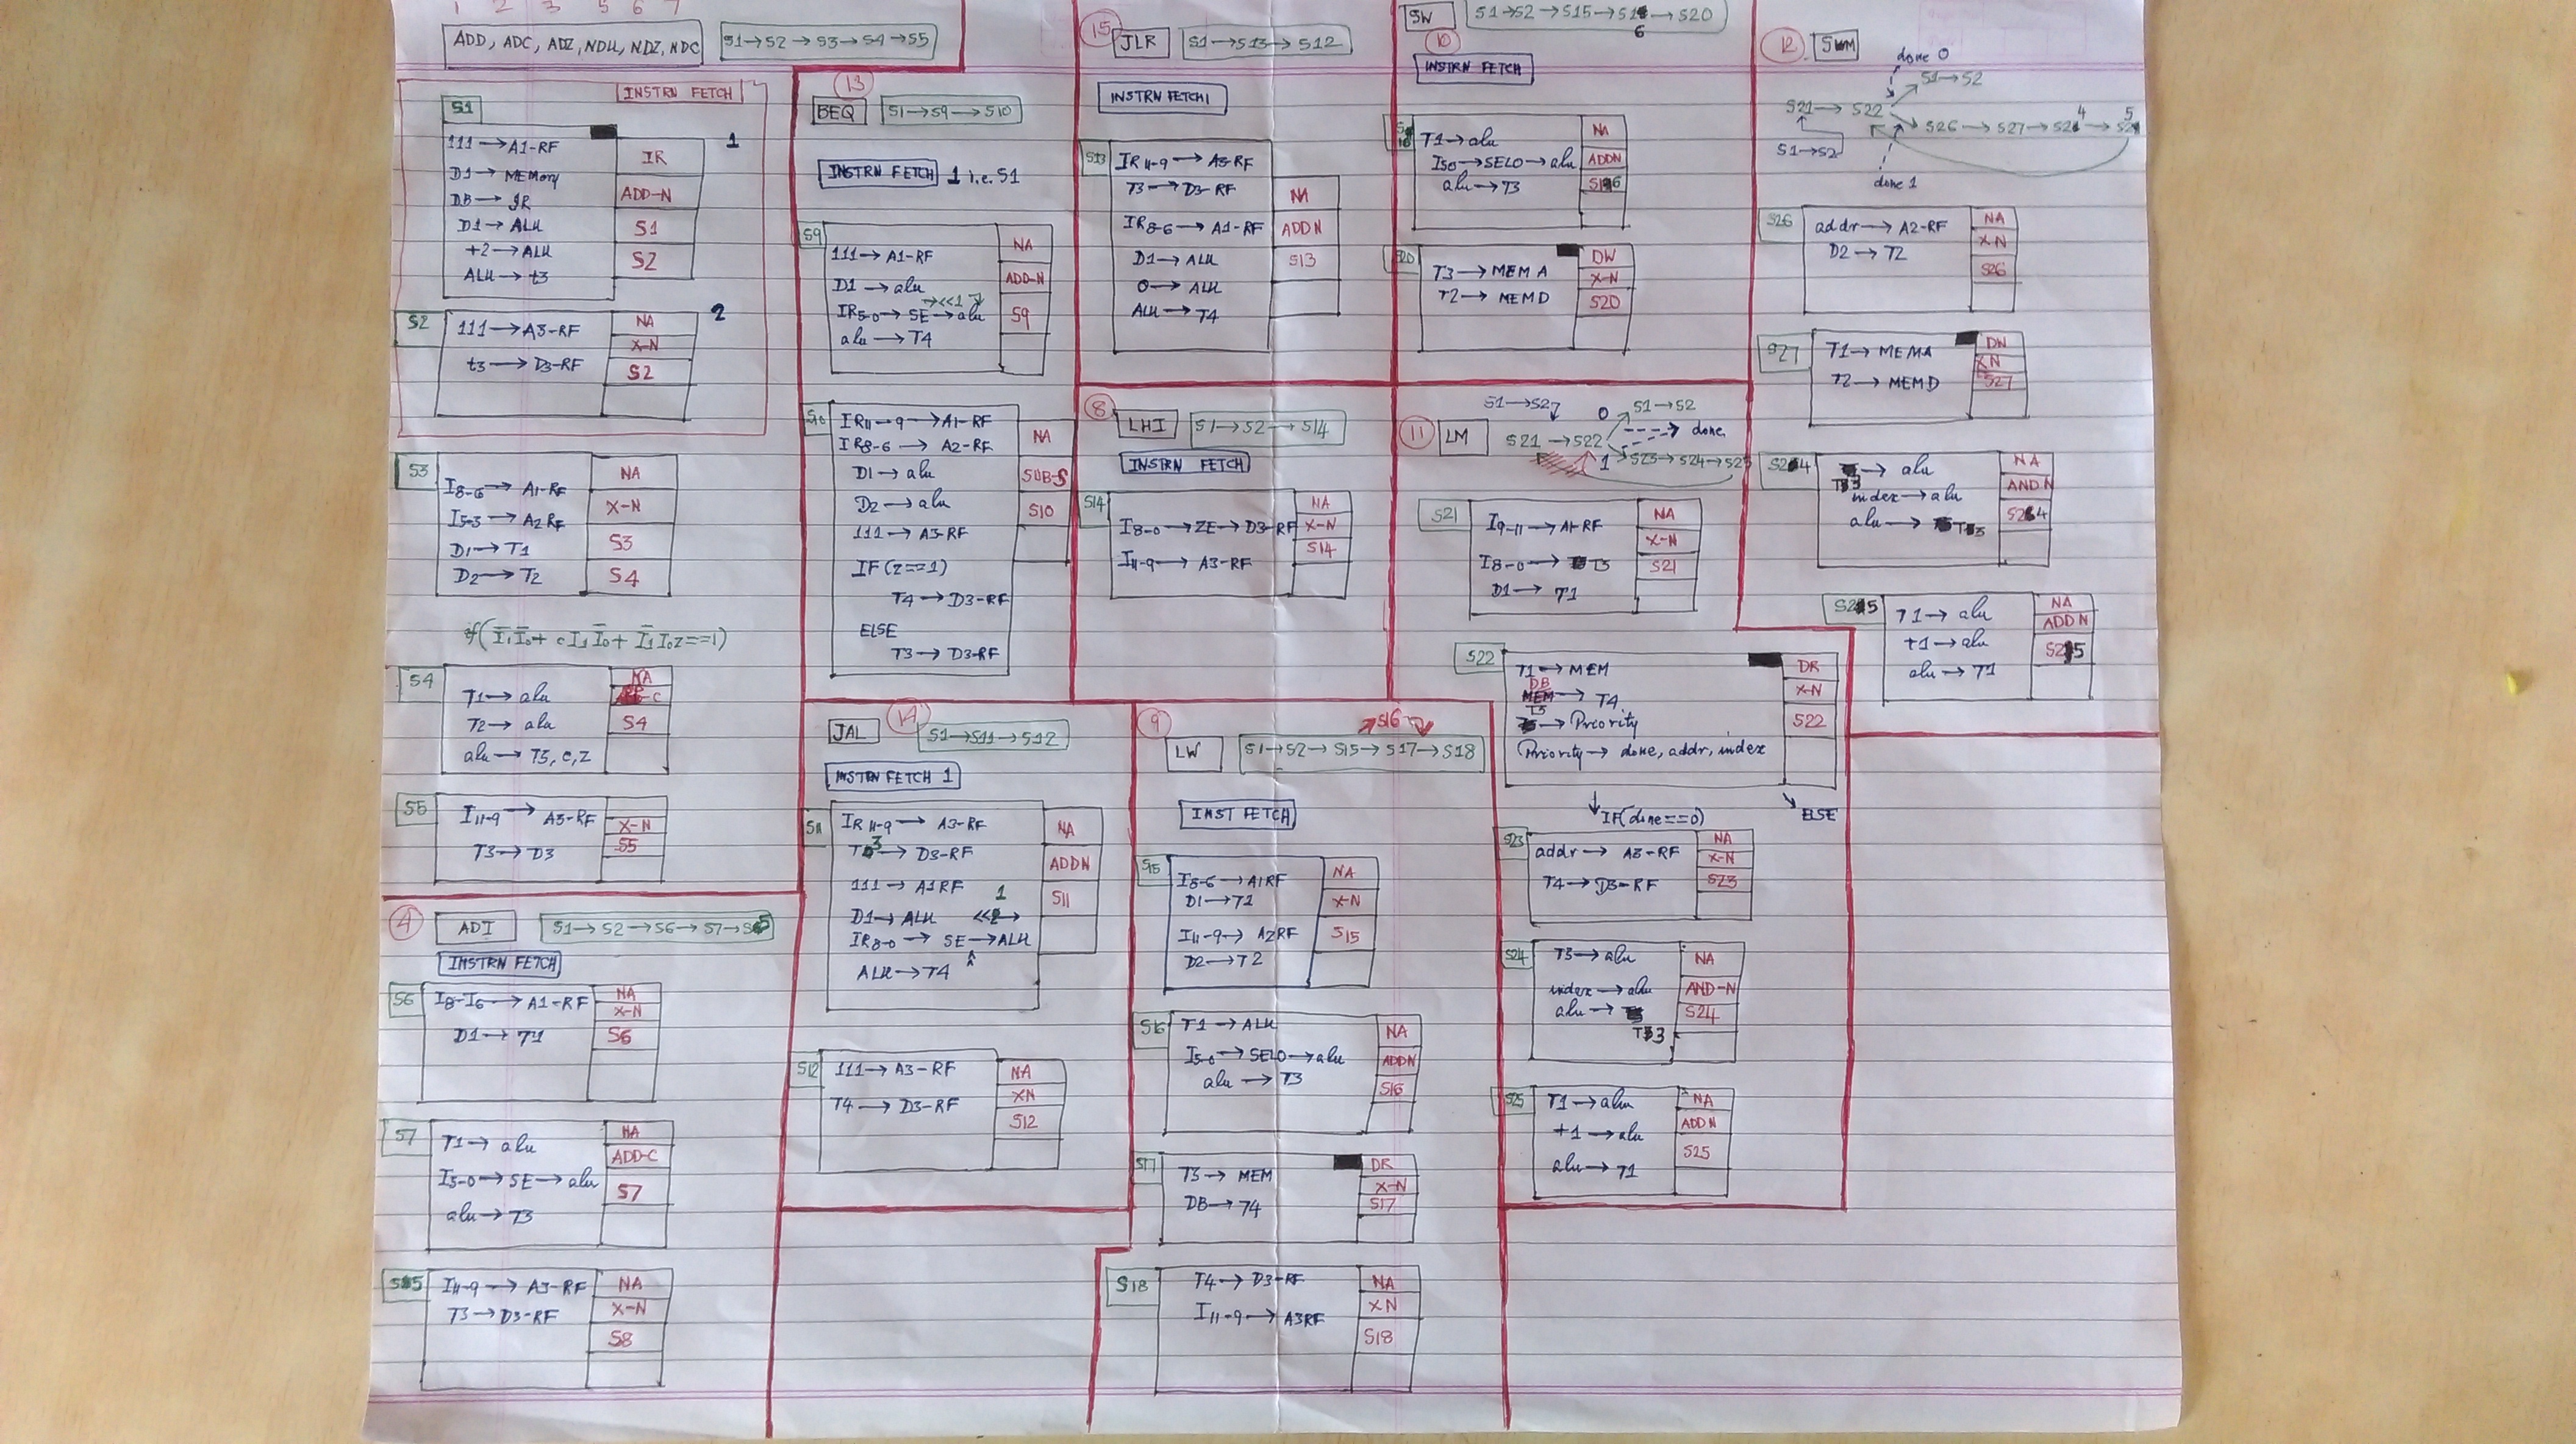 1 2 3 5 6 7
ADD, ADC, ADZ, NDU, NDZ, NDC
S1→S2→S3→S4→S5
INSTRN FETCH
S1
111→A1-RF
D1→MEMory
DB→IR
D1→ALU
+2→ALU
ALU→t3
IR
ADD-N
S1
S2
1
S2
111→A3-RF
t3→D3-RF
NA
X-N
S2
2
S3
I8-6→A1-RF
I5-3→A2RF
D1→T1
D2→T2
NA
X-N
S3
S4
if(I̅1I̅0+cI1I̅0+I̅1I0z==1)
S4
T1→alu
T2→alu
alu→T3,C,Z
NA
S4
S5
I11-9→A3-RF
T3→D3
X-N
S5
4 ADI
S1→S2→S6→S7→S5
INSTRN FETCH
S6
I8-I6→A1-RF
D1→T1
NA
X-N
S6
S7
T1→alu
I5-0→SE→alu
alu→T3
NA
ADD-C
S7
S5
I11-9→A3-RF
T3→D3-RF
NA
X-N
S8
13
BEQ
S1→S9→S10
INSTRN FETCH 1 i.e. S1
S9
111→A1-RF
D1→alu
→<<1
IR5-0→SE→alu
alu→T4
NA
ADD-N
S9
S10
IR11-9→A1-RF
IR8-6→A2-RF
D1→alu
D2→alu
111→A3-RF
IF(z==1)
T4→D3-RF
ELSE
T3→D3-RF
NA
SUB-S
S10
14
JAL
S1→S11→S12
INSTRN FETCH 1
S11
IR11-9→A3-RF
T3→D3-RF
111→A1RF
D1→ALU <<1→
IR8-0→SE→ALU
ALU→T4
NA
ADDN
S11
S12
111→A3-RF
T4→D3-RF
NA
XN
S12
15 JLR
S1→S13→S12
INSTRN FETCH1
S13
IR11-9→A3-RF
T3→D3-RF
IR8-6→A1-RF
D1→ALU
0→ALU
ALU→T4
NA
ADDN
S13
8 LHI
S1→S2→S14
INSTRN FETCH
S14
I8-0→ZE→D3-RF
I11-9→A3-RF
NA
X-N
S14
9
LW
→S16
S1→S2→S15→S17→S18
INST FETCH
S15
I8-6→A1RF
D1→T1
I11-9→A2RF
D2→T2
NA
X-N
S15
S16
T1→ALU
I5-0→SELO→alu
alu→T3
NA
ADDN
S16
S17
T3→MEM
DB→T4
DR
X-N
S17
S18
T4→D3-RF
I11-9→A3RF
NA
XN
S18
SW
S1→S2→S15→S16→S20
10
INSTRN FETCH
16
T1→alu
I50→SELO→alu
alu→T3
NA
ADDN
S16
S20
T3→MEMA
T2→MEMD
DW
X-N
S20
11 LM
S1→S2
S21→S22
0
S1→S2
done
1
S23→S24→S25
S21
I9-11→A1-RF
I8-0→T3
D1→T1
NA
X-N
S21
S22
T1→MEM
DB→T4
T3→Priority
Priority→done, addr, index
DR
X-N
S22
↓IF(done==0)
ELSE
S23
addr→A3-RF
T4→D3-RF
NA
X-N
S23
S24
T3→alu
index→alu
alu→T3
NA
AND-N
S24
S25
T1→alu
+1→alu
alu→T1
NA
ADDN
S25
12 SWM
done 0
S1→S2
S21→S22
S26→S27→S24→S25
S1→S2
done 1
S26
addr→A2-RF
D2→T2
NA
X-N
S26
S27
T1→MEMA
T2→MEMD
DW
XN
S27
S24
T3→alu
index→alu
alu→T3
NA
AND N
S24
S25
T1→alu
+1→alu
alu→T1
NA
ADDN
S25